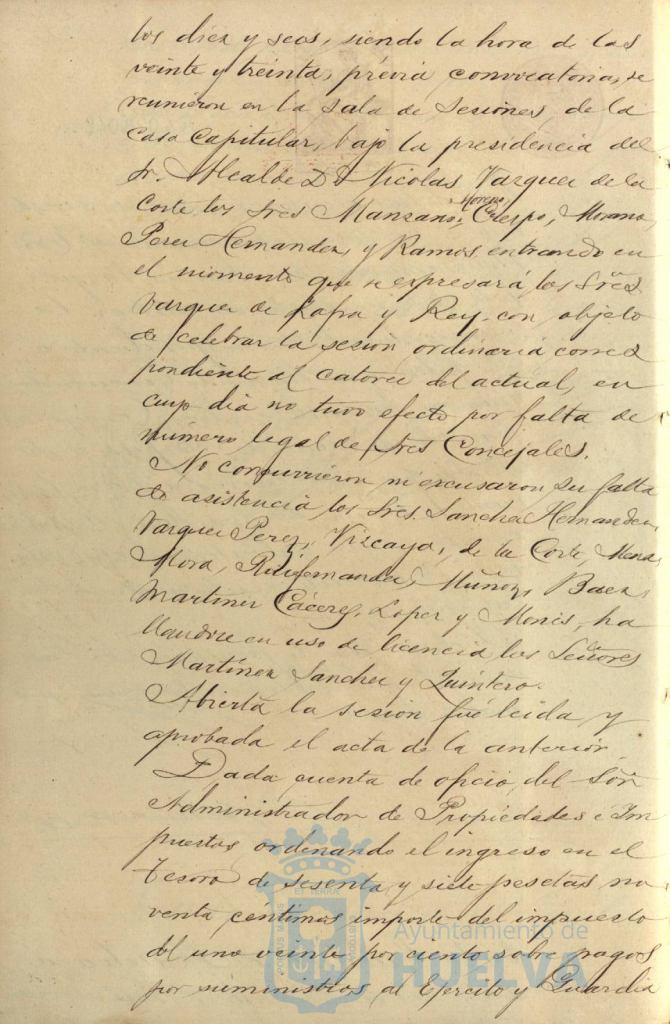 tos diez y seis, siendo la hora de las
veinte y treinta, prévia convocatoria, se
reunieron en la sala de sesiones, de la
Casa Capitular, bajo la presidencia del
Sr. Alcalde D. Nicolas Vazquez de la
Corte los Sres Manzano, Moreno, Crespo, Morano,
Perez Hernandez, y Ramos, entrando en
el momento que se expresará los Sres
Vazquez de Zafra y Rey, con objeto
de celebrar la sesión ordinaria corres
pondiente al catorce del actual, en
cuyo dia no tuvo efecto por falta de
número legal de Sres Concejales.
No concurrieron ni excusaron su falta
de asistencia los Sres. Sanchez Hernandez,
Vazquez Perez, Vizcaya, de la Corte, Mena,
Mora, Ruifernandez, Muñoz, Baez,
Martinez Cáceres, Lopez y Monis, ha
llandose en uso de licencia los Señores
Martínez Sanchez y Quintero.
Abierta la sesion fué leida y
aprobada el acta de la anterior
Dada cuenta de oficio del Sor
Administrador de Propiedades é Im
puestos ordenando el ingreso en el
Tesoro de sesenta y siete pesetas no
venta centimos importe del impuesto
del uno veinte por ciento sobre pagos
por suministros al Ejercito y Guardia
Ayuntamiento de
HUELVA